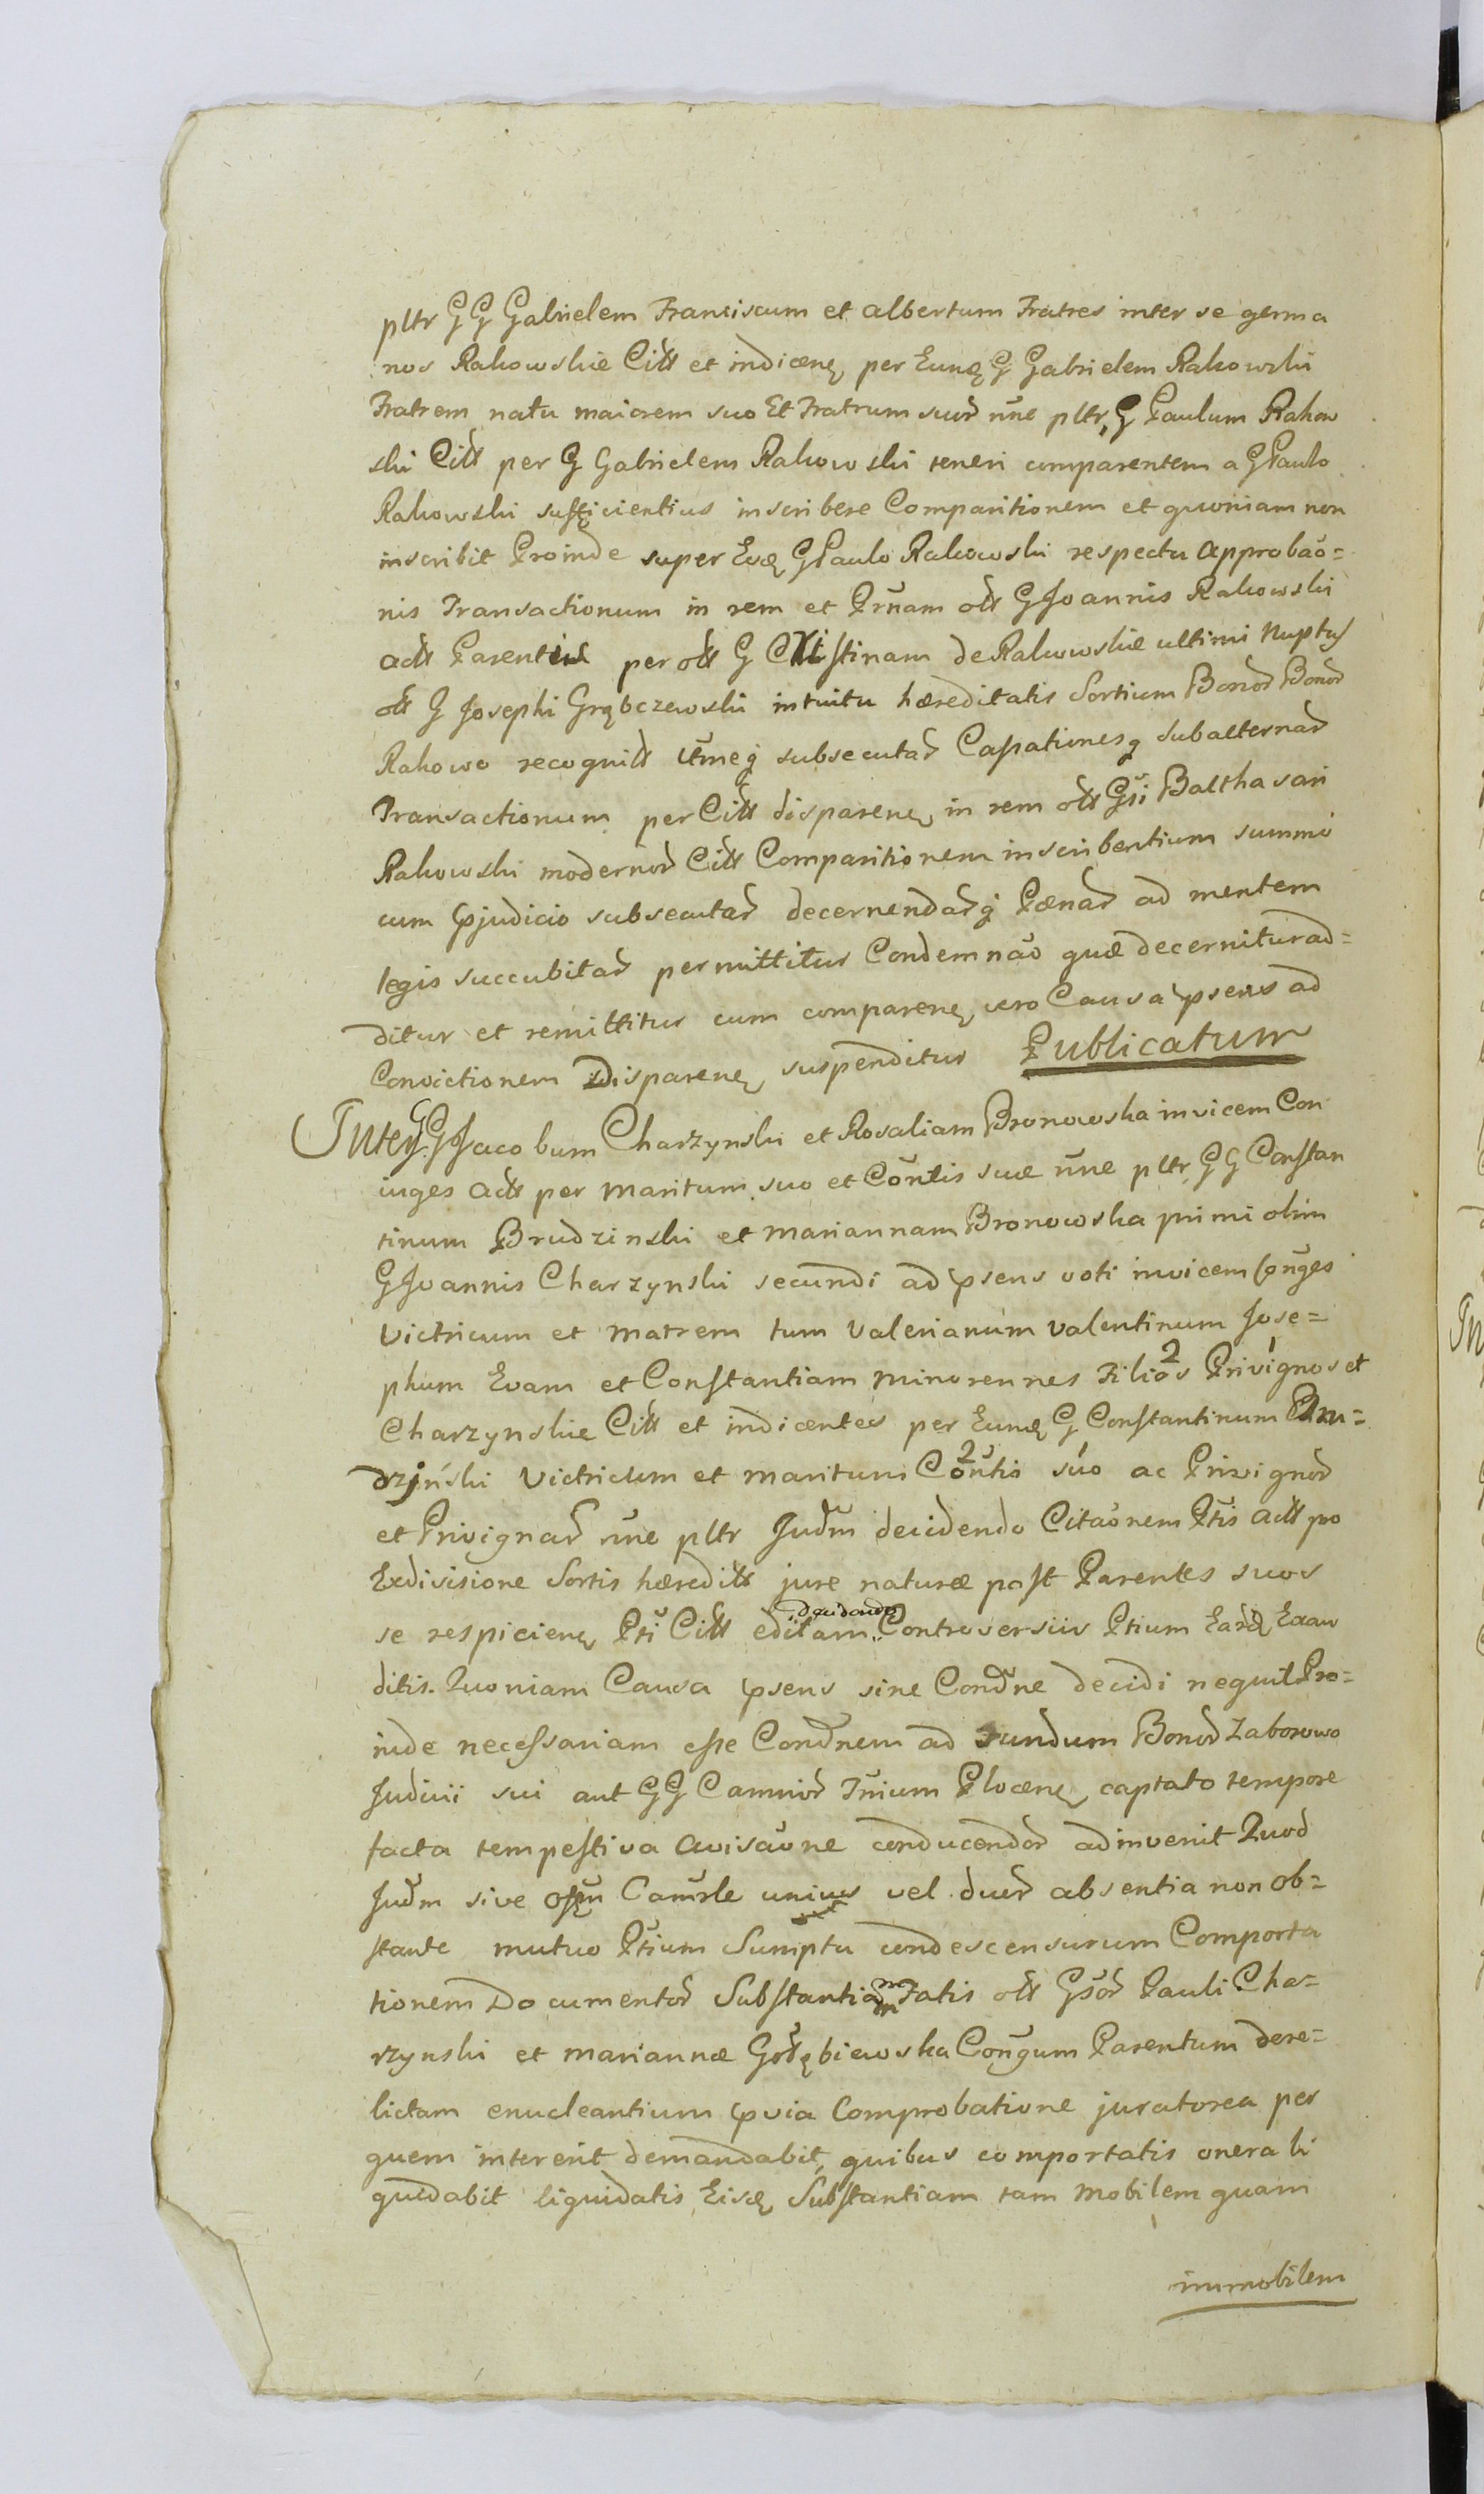 pltr GG Gabrielem Franciscum et Albertum Fratres inter se germa
nos Rakowskie Citt et indicenę per Eundę G Gabrielem Rakowski
Fratrem natu maiorem suo Et Fratrum suor nũe pltr, G Paulum Rakow
ski Citt per G Gabrielem Rakowski teneri comparentem a GPaulo
Rakowski sufficientius inscribere Comparitionem et quoniam non
inscribit Proinde super Eodę GPaulo Rakowski respectu Approbaõ=
nis Transactionum in rem et Prnam ott GJoannis Rakowski
Actt Parentis per ott G Christinam de Rakowskie ultimi Nuptus
ott G Josephi Grąbczewski intuitu hæreditatis Sortium Bonor Bonor
Rakowo recognitt itmeq subsecutar Cassationesq subalternar
Transactionum per Citt disparenę in rem ott Gsi Balthasari
Rakowski modernor Citt Comparitionem inscribentium summo
cum pjudicio subsecutar decernendarq Pœnar ad mentem
legis succubitar permittitur Condemnaõ quæ decernitur ad=
ditur et remittitur cum comparenę vero Causa psens ad
Convictionem Disparenę suspenditur Publicatum
Inter GGJacobum Charzynski et Rosaliam Bronowska invicem Con
iuges Actt per Maritum suo et Cõntis suæ nũe pltr, GG Constan
tinum Brudzinski et Mariannam Bronowska primi olim
GJoannis Charzynski secundi ad psens voti invicem Coñges
Victricum et Matrem tum Valerianum Valentinum Jose=
phum Evam et Constantiam Minorennes Filios 2 Privignos 1 et
Charzynskie Citt et indicentes per Eundę G Constantinum Bru=
dzinski Victricum et Maritum Cõntis 2 suo 1 ac Privignor
et Privignar nũe pltr Judm decidendo Citaõnem Ptis Actt pro
Exdivisione Sortis hæreditt jure naturæ post Parentes suos
se respicienę Pti Citt editam decidendo Controversiis Ptium Earde Exau
ditis. Quoniam Causa psens sine Condne decidi nequit Pro=
inde necessariam esse Condnem ad Fundum Bonor Zaborowo
Judicii sui aut GG Camrior Trium Plocenę captato tempore
facta tempestiva avisaõne conducendor adinvenit Quod
Judm sive Offm Camrle unius vel duor absentia non ob=
stante mutuo Ptium Sumptu condescensurum Comporta
tionem Documentor Substantiam Fatis ott Gsor Pauli Cha=
rzynski et Mariannæ Gołębiewska Coñgum Parentum dere=
lictam enucleantium pvia Comprobatione juratorea per
quem intererit demandabit, quibus comportatis onera li
quidabit liquidatis Eisdę Substantiam tam Mobilem quam
immobilem